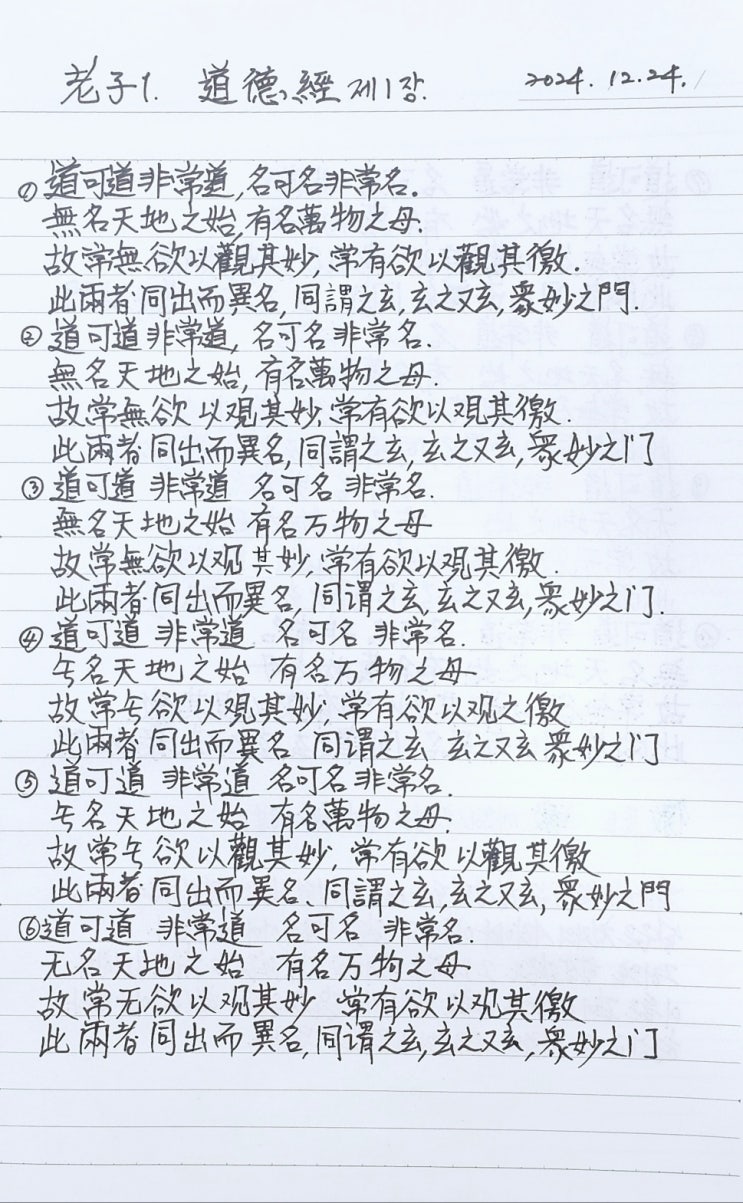 老子1. 道德經 제1장. 2024.12.24.
① 道可道非常道,名可名非常名.
無名天地之始,有名萬物之母.
故常無欲以觀其妙,常有欲以觀其徼.
此兩者同出而異名,同謂之玄,玄之又玄,衆妙之門.
② 道可道非常道,名可名非常名.
無名天地之始,有名萬物之母.
故常無欲以观其妙,常有欲以观其徼.
此兩者同出而異名,同謂之玄,玄之又玄,衆妙之门
③ 道可道 非常道 名可名 非常名.
無名天地之始 有名万物之母
故常無欲以观其妙,常有欲以观其徼.
此兩者同出而異名,同谓之玄,玄之又玄,衆妙之门.
④ 道可道 非常道 名可名 非常名.
无名天地之始 有名万物之母
故常无欲以观其妙,常有欲以观之徼
此兩者同出而異名 同谓之玄 玄之又玄 衆妙之门
⑤ 道可道 非常道 名可名非常名.
无名天地之始 有名萬物之母.
故常无欲以觀其妙,常有欲以觀其徼
此兩者同出而異名、同謂之玄,玄之又玄,衆妙之門
⑥ 道可道 非常道 名可名 非常名.
无名天地之始 有名万物之母
故常无欲以观其妙 常有欲以观其徼
此兩者同出而異名,同谓之玄,玄之又玄,衆妙之门